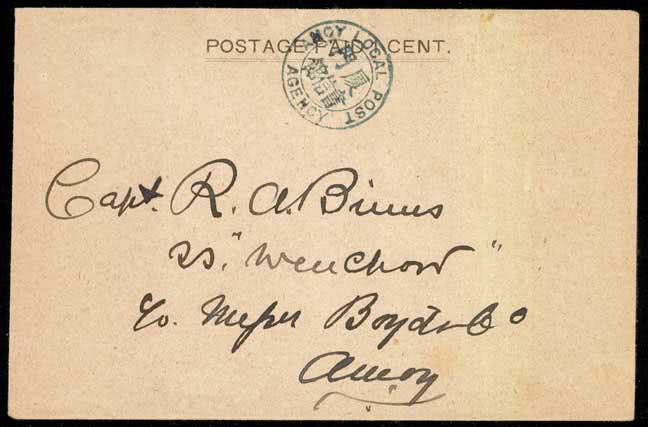 POSTAGE PAID 1 CENT.
AMOY LOCAL POST
AGENCY
Capt. R. A. Binns
SS. "Wenchow"
c/o. Messrs Boyd & Co
Amoy